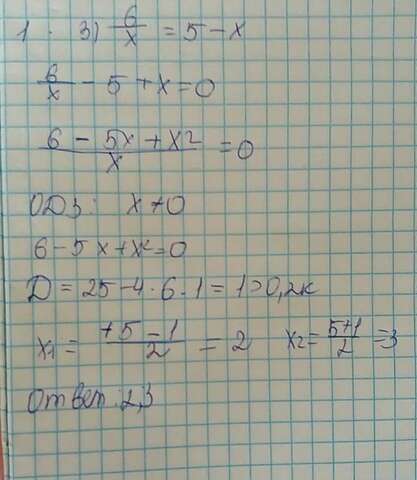 1. 3) 6/x = 5 - x
6/x - 5 + x = 0
(6 - 5x + x²)/x = 0
ОДЗ: x ≠ 0
6 - 5x + x² = 0
D = 25 - 4 · 6 · 1 = 1 > 0, 2к
x₁ = (+5 - 1)/2 = 2 x₂ = (5+1)/2 = 3
Ответ: 2,3